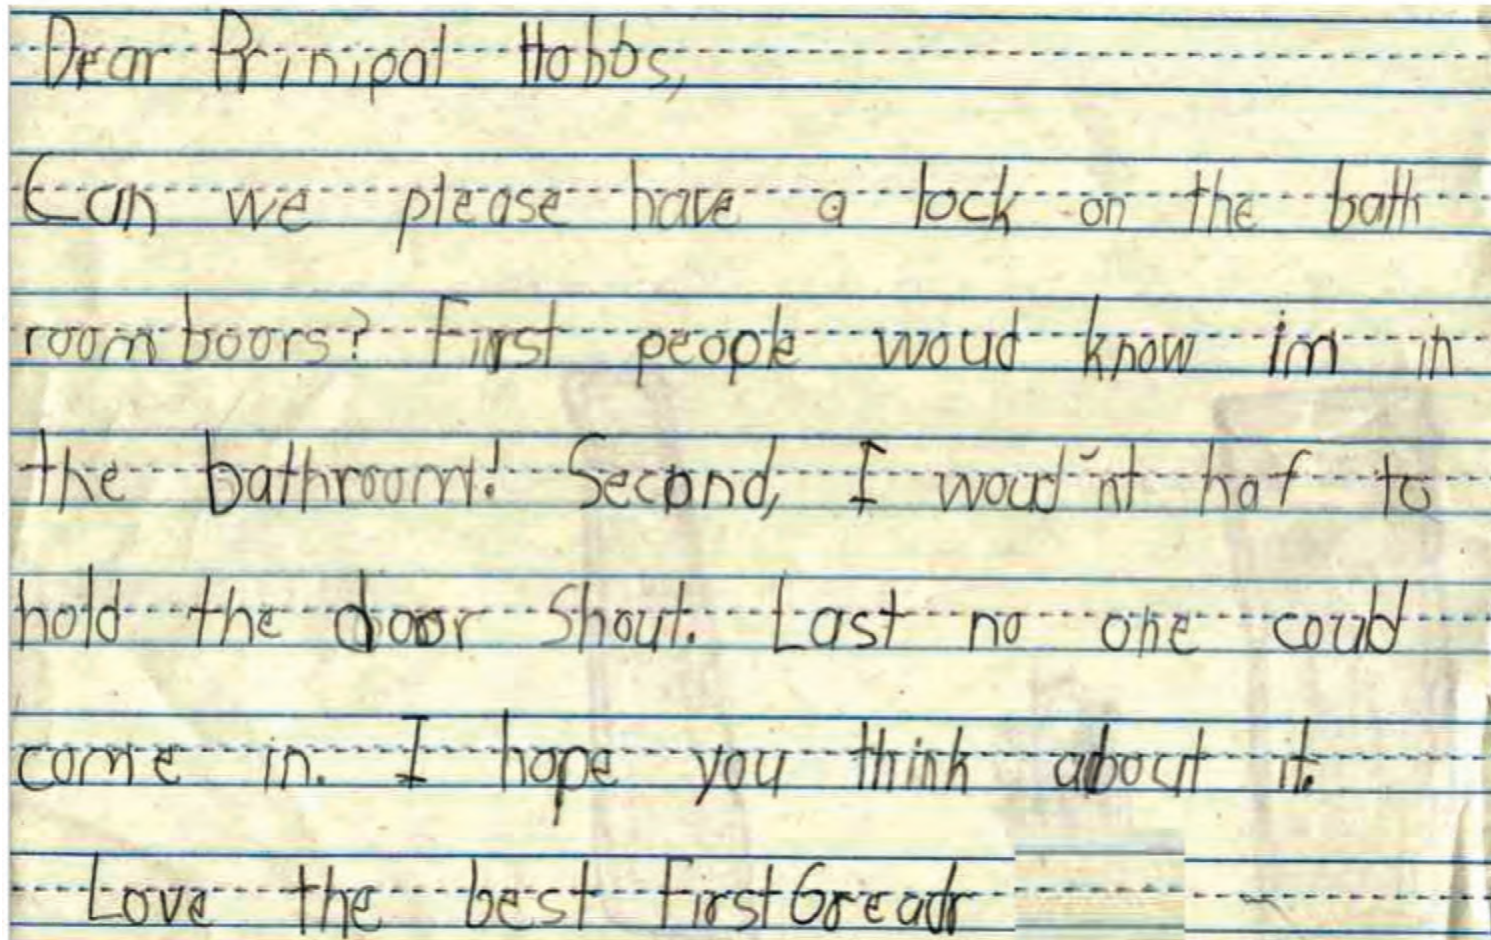 Dear Prinipal Hobbs,
Can we please have a lock on the bath
room boors? First people woud know im in
the bathroom! Second, I woud'nt haf to
hold the door Shout. Last no one coud
come in. I hope you think about it.
Love the best First Greadr